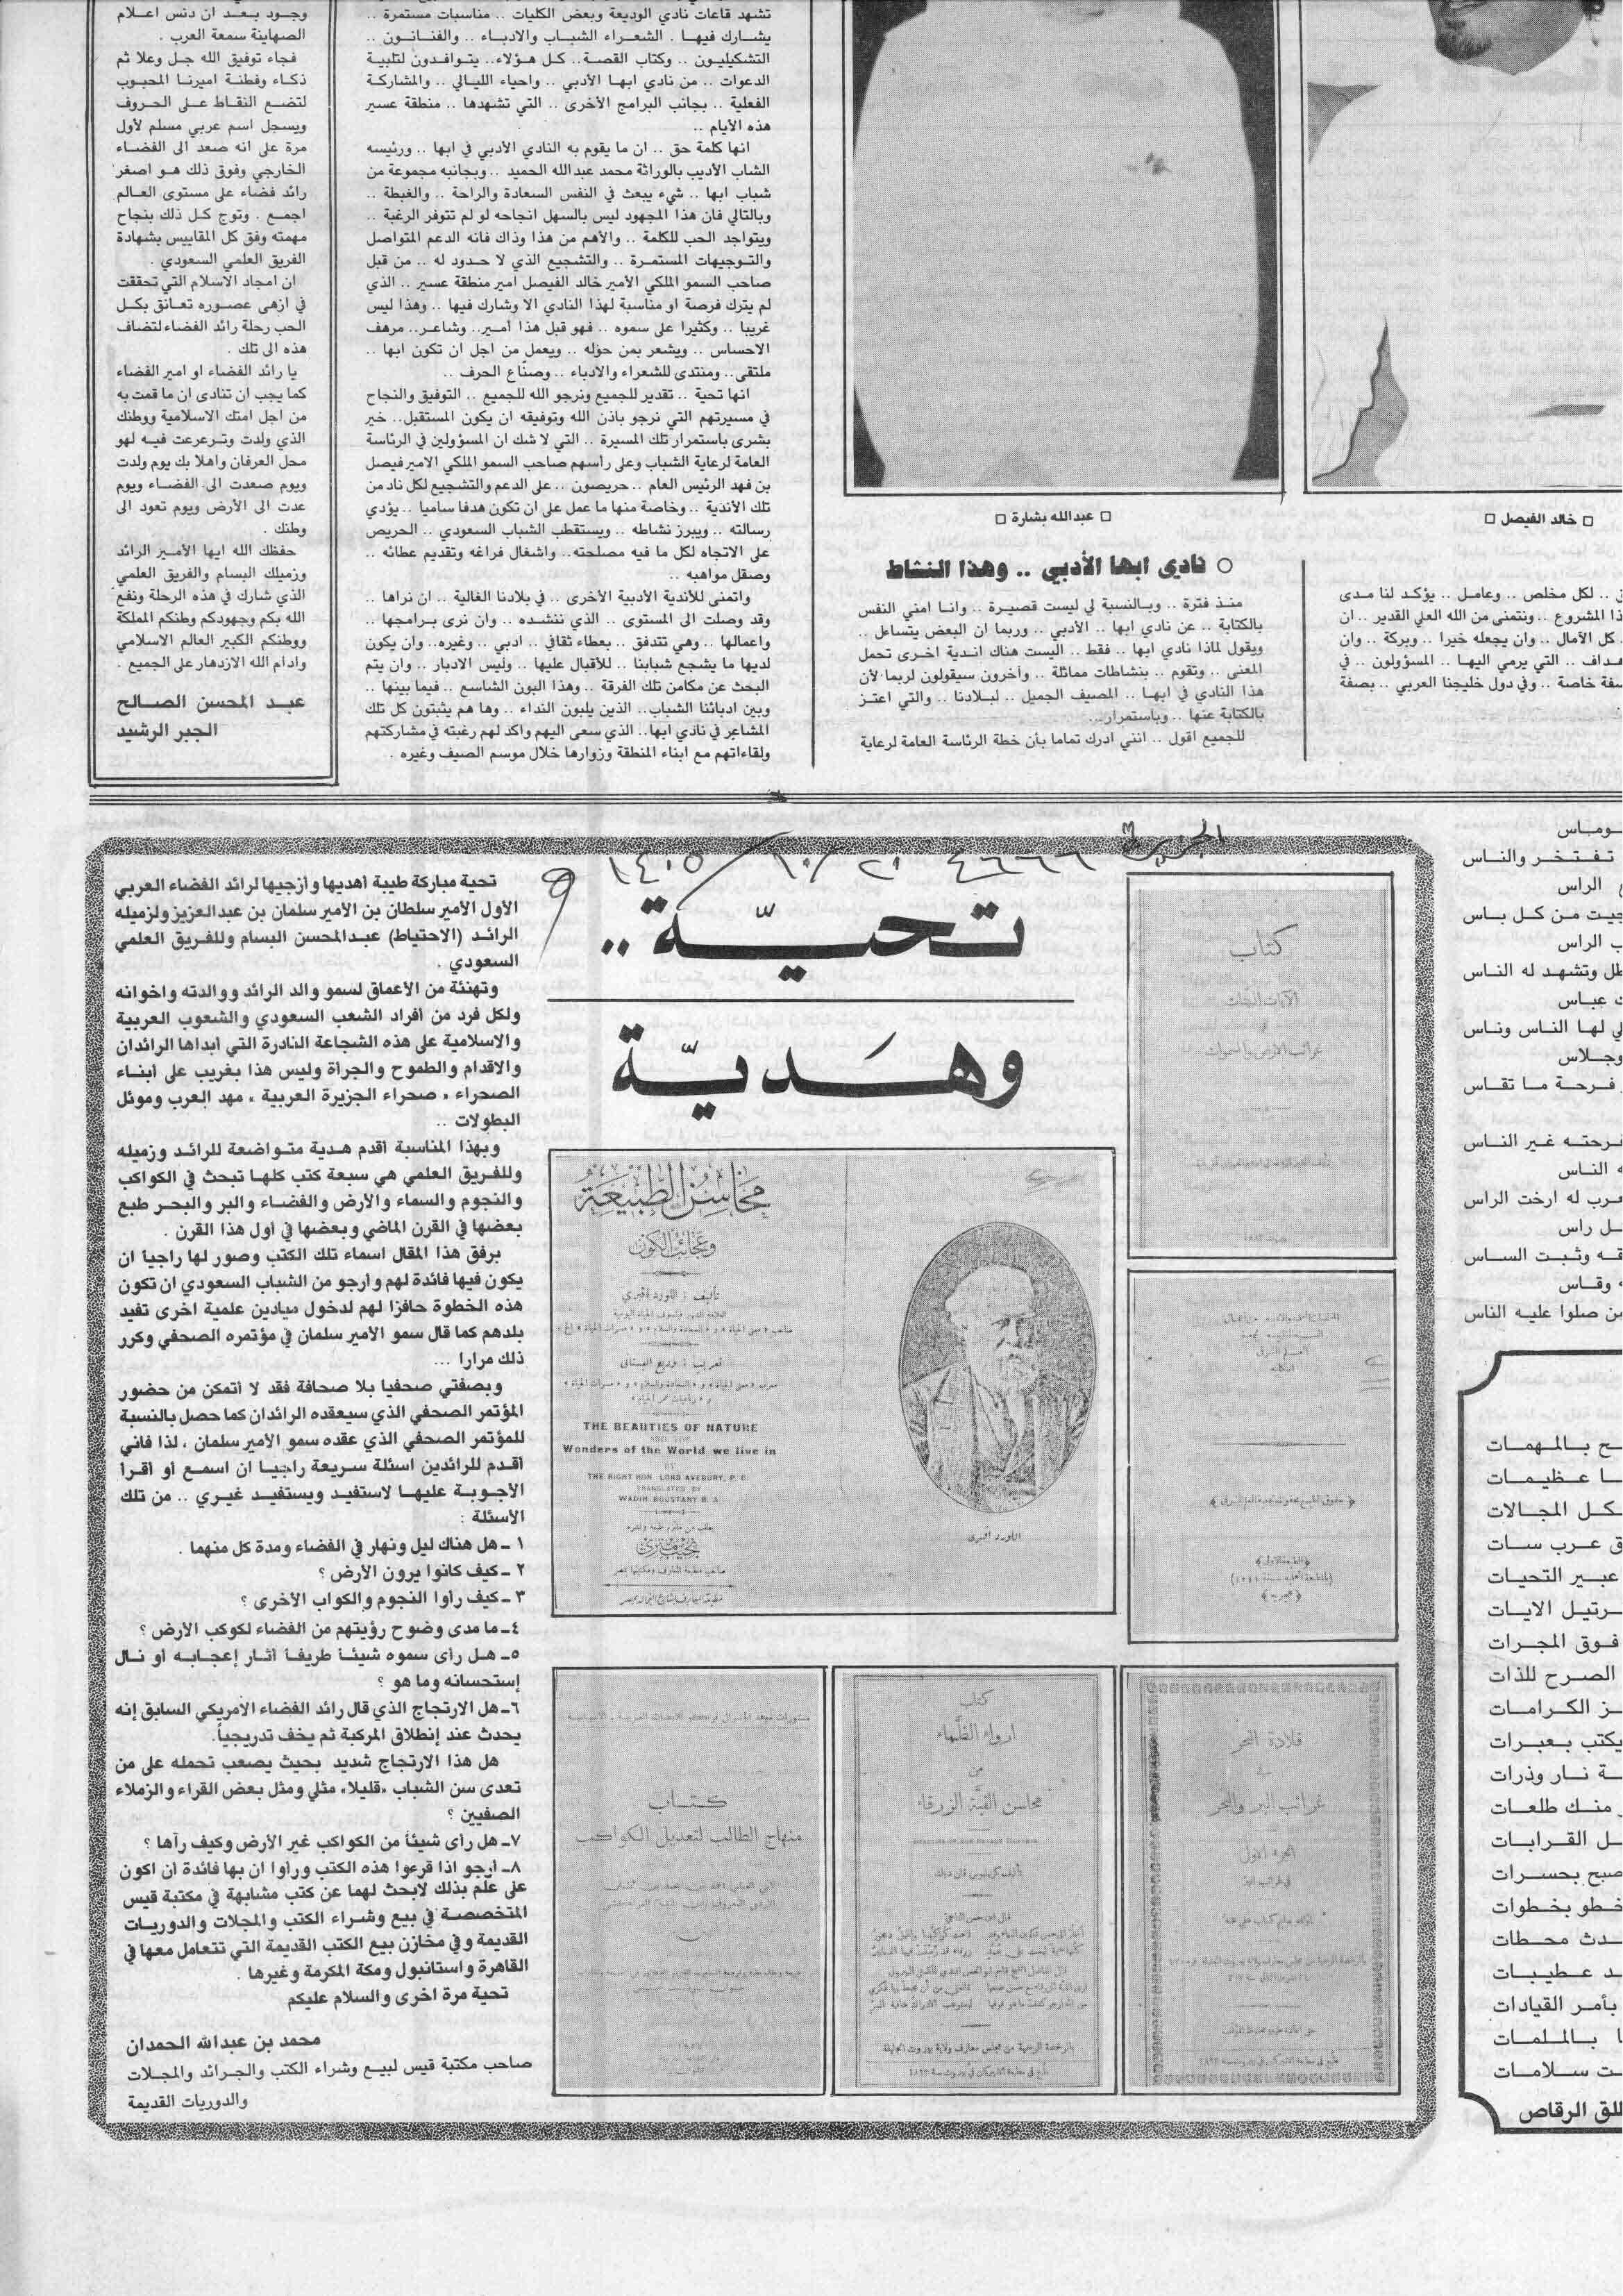 □ خالد الفيصل □
□ عبدالله بشارة □
ق .. لكل مخلص .. وعامل .. يؤكد لنا مدى
ذا المشروع .. ونتمنى من الله العلي القدير .. ان
كل الآمال .. وان يجعله خيرا .. وبركة .. وان
هداف .. التي يرمي اليها .. المسؤولون .. في
سفة خاصة .. وفي دول خليجنا العربي .. بصفة
○ نادى ابها الأدبي .. وهذا النشاط
منذ فترة .. وبالنسبة لي ليست قصيرة .. وانا امني النفس
بالكتابة .. عن نادي ابها .. الأدبي .. وربما ان البعض يتساءل ..
ويقول لماذا نادي ابها .. فقط .. اليست هناك اندية اخرى تحمل
المعنى .. وتقوم .. بنشاطات مماثلة .. وأخرون سيقولون لربما لأن
هذا النادي في ابها .. المصيف الجميل .. لبلادنا .. والتي اعتز
بالكتابة عنها .. وباستمرار ..
للجميع اقول .. انني ادرك تماما بأن خطة الرئاسة العامة لرعاية
تشهد قاعات نادي الوديعة وبعض الكليات .. مناسبات مستمرة ..
يشارك فيها . الشعراء الشباب والادباء .. والفنانون ..
التشكيليون .. وكتاب القصة .. كل هؤلاء .. يتوافدون لتلبية
الدعوات .. من نادي ابها الأدبي .. واحياء الليالي .. والمشاركة
الفعلية .. بجانب البرامج الأخرى .. التي تشهدها .. منطقة عسير
هذه الأيام ..
انها كلمة حق .. ان ما يقوم به النادي الأدبي في ابها .. ورئيسه
الشاب الأديب بالوراثة محمد عبدالله الحميد .. وبجانبه مجموعة من
شباب ابها .. شيء يبعث في النفس السعادة والراحة .. والغبطة ..
وبالتالي فان هذا المجهود ليس بالسهل انجاحه لو لم تتوفر الرغبة ..
ويتواجد الحب للكلمة .. والأهم من هذا وذاك فانه الدعم المتواصل
والتوجيهات المستمرة .. والتشجيع الذي لا حدود له .. من قبل
صاحب السمو الملكي الأمير خالد الفيصل امير منطقة عسير .. الذي
لم يترك فرصة او مناسبة لهذا النادي الا وشارك فيها .. وهذا ليس
غريبا .. وكثيرا على سموه .. فهو قبل هذا أمير .. وشاعر .. مرهف
الاحساس .. ويشعر بمن حوله .. ويعمل من اجل ان تكون ابها ..
ملتقى .. ومنتدى للشعراء والادباء .. وصنّاع الحرف ..
انها تحية .. تقدير للجميع ونرجو الله للجميع .. التوفيق والنجاح
في مسيرتهم التي نرجو باذن الله وتوفيقه ان يكون المستقبل .. خير
بشرى باستمرار تلك المسيرة .. التي لا شك ان المسؤولين في الرئاسة
العامة لرعاية الشباب وعلى رأسهم صاحب السمو الملكي الامير فيصل
بن فهد الرئيس العام .. حريصون .. على الدعم والتشجيع لكل ناد من
تلك الأندية .. وخاصة منها ما عمل على ان تكون هدفا ساميا .. يؤدي
رسالته .. ويبرز نشاطه .. ويستقطب الشباب السعودي .. الحريص
على الاتجاه لكل ما فيه مصلحته .. واشغال فراغه وتقديم عطائه ..
وصقل مواهبه ..
واتمنى للأندية الأدبية الأخرى .. في بلادنا الغالية .. ان نراها ..
وقد وصلت الى المستوى .. الذي ننشده .. وان نرى برامجها ..
واعمالها .. وهي تتدفق .. بعطاء ثقافي .. ادبي .. وغيره .. وان يكون
لديها ما يشجع شبابنا .. للأقبال عليها .. وليس الادبار .. وان يتم
البحث عن مكامن تلك الفرقة .. وهذا البون الشاسع .. فيما بينها ..
وبين ادبائنا الشباب .. الذين يلبون النداء .. وها هم يثبتون كل تلك
المشاعر في نادي ابها .. الذي سعى اليهم واكد لهم رغبته في مشاركتهم
ولقاءاتهم مع ابناء المنطقة وزوارها خلال موسم الصيف وغيره .
وجود بعد ان دنس اعلام
الصهاينة سمعة العرب .
فجاء توفيق الله جل وعلا ثم
ذكاء وفطنة اميرنا المحبوب
لتضع النقاط على الحروف
ويسجل اسم عربي مسلم لأول
مرة على انه صعد الى الفضاء
الخارجي وفوق ذلك هو اصغر
رائد فضاء على مستوى العالم
اجمع . وتوج كل ذلك بنجاح
مهمته وفق كل المقاييس بشهادة
الفريق العلمي السعودي .
ان امجاد الاسلام التي تحققت
في ازهى عصوره تعانق بكل
الحب رحلة رائد الفضاء لتضاف
هذه الى تلك .
يا رائد الفضاء او امير الفضاء
كما يجب ان تنادى ان ما قمت به
من اجل امتك الاسلامية ووطنك
الذي ولدت وترعرعت فيه لهو
محل العرفان واهلا بك يوم ولدت
ويوم صعدت الى الفضاء ويوم
عدت الى الأرض ويوم تعود الى
وطنك .
حفظك الله ايها الأمير الرائد
وزميلك البسام والفريق العلمي
الذي شارك في هذه الرحلة ونفع
الله بكم وجهودكم وطنكم المملكة
ووطنكم الكبير العالم الاسلامي
وادام الله الازدهار على الجميع .
عبد المحسن الصالح
الجبر الرشيد
الجزيرة ٤٦٦٦ ٢٠/١٠/١٤٠٥
تحيّة ..
وهديّة
تحية مباركة طيبة أهديها وأزجيها لرائد الفضاء العربي
الأول الأمير سلطان بن الأمير سلمان بن عبدالعزيز ولزميله
الرائد (الاحتياط) عبدالمحسن البسام وللفريق العلمي
السعودي .
وتهنئة من الأعماق لسمو والد الرائد ووالدته واخوانه
ولكل فرد من أفراد الشعب السعودي والشعوب العربية
والاسلامية على هذه الشجاعة النادرة التي أبداها الرائدان
والاقدام والطموح والجرأة وليس هذا بغريب على أبناء
الصحراء ، صحراء الجزيرة العربية ، مهد العرب وموئل
البطولات ..
وبهذا المناسبة أقدم هدية متواضعة للرائد وزميله
وللفريق العلمي هي سبعة كتب كلها تبحث في الكواكب
والنجوم والسماء والأرض والفضاء والبر والبحر طبع
بعضها في القرن الماضي وبعضها في أول هذا القرن .
برفق هذا المقال اسماء تلك الكتب وصور لها راجيا ان
يكون فيها فائدة لهم وارجو من الشباب السعودي ان تكون
هذه الخطوة حافزا لهم لدخول ميادين علمية اخرى تفيد
بلدهم كما قال سمو الأمير سلمان في مؤتمره الصحفي وكرر
ذلك مرارا ...
وبصفتي صحفيا بلا صحافة فقد لا أتمكن من حضور
المؤتمر الصحفي الذي سيعقده الرائدان كما حصل بالنسبة
للمؤتمر الصحفي الذي عقده سمو الأمير سلمان ، لذا فاني
أقدم للرائدين اسئلة سريعة راجيا ان اسمع أو أقرأ
الأجوبة عليها لاستفيد ويستفيد غيري .. من تلك
الأسئلة :
١ ـ هل هناك ليل ونهار في الفضاء ومدة كل منهما .
٢ ـ كيف كانوا يرون الأرض ؟
٣ ـ كيف رأوا النجوم والكواب الأخرى ؟
٤ ـ ما مدى وضوح رؤيتهم من الفضاء لكوكب الأرض ؟
٥ ـ هل رأى سموه شيئاً طريفاً أثار إعجابه أو نال
إستحسانه وما هو ؟
٦ ـ هل الارتجاج الذي قال رائد الفضاء الأمريكي السابق إنه
يحدث عند إنطلاق المركبة ثم يخف تدريجياً.
هل هذا الارتجاج شديد بحيث يصعب تحمله على من
تعدى سن الشباب «قليلا» مثلي ومثل بعض القراء والزملاء
الصفيين ؟
٧ ـ هل رأى شيئاً من الكواكب غير الأرض وكيف رآها ؟
٨ ـ أرجو اذا قرءوا هذه الكتب ورأوا ان بها فائدة ان اكون
على علم بذلك لابحث لهما عن كتب مشابهة في مكتبة قيس
المتخصصة في بيع وشراء الكتب والمجلات والدوريات
القديمة وفي مخازن بيع الكتب القديمة التي تتعامل معها في
القاهرة واستانبول ومكة المكرمة وغيرها .
تحية مرة اخرى والسلام عليكم
محمد بن عبدالله الحمدان
صاحب مكتبة قيس لبيع وشراء الكتب والجرائد والمجلات
والدوريات القديمة
كتاب
الآيات البينات
في
غرائب الارض والسموات
محاسن الطبيعة
وعجائب الكون
تأليف : اللورد افبري
تعريب : وديع البستاني
THE BEAUTIES OF NATURE
AND THE
Wonders of the World we live in
BY
THE RIGHT HON. LORD AVEBURY, P. C.
TRANSLATED BY
WADIH BOUSTANY B. A
اللورد أفبري
كتاب
منهاج الطالب لتعديل الكواكب
كتاب
ارواء الظماء
من
محاسن القبة الزرقاء
قلادة النحر
في
غرائب البر والبحر
الجزء الاول
في غرائب البر
تفتخر والناس
الراس
جيت من كل باس
ب الراس
طل وتشهد له الناس
ت عباس
لي لها الناس وناس
وجلاس
فرحة ما تقاس
فرحته غير الناس
ه الناس
عرب له ارخت الراس
ل راس
قه وثبت الساس
وقاس
من صلوا عليه الناس
ح بالمهمات
ا عظيمات
كل المجالات
ق عرب سات
عبير التحيات
رتيل الايات
فوق المجرات
الصرح للذات
ز الكرامات
يكتب بعبرات
ة نار وذرات
منك طلعات
ل القرابات
صبح بحسرات
خطو بخطوات
دث محطات
د عطيبات
بأمر القيادات
ا بالملمات
ت سلامات
للق الرقاص